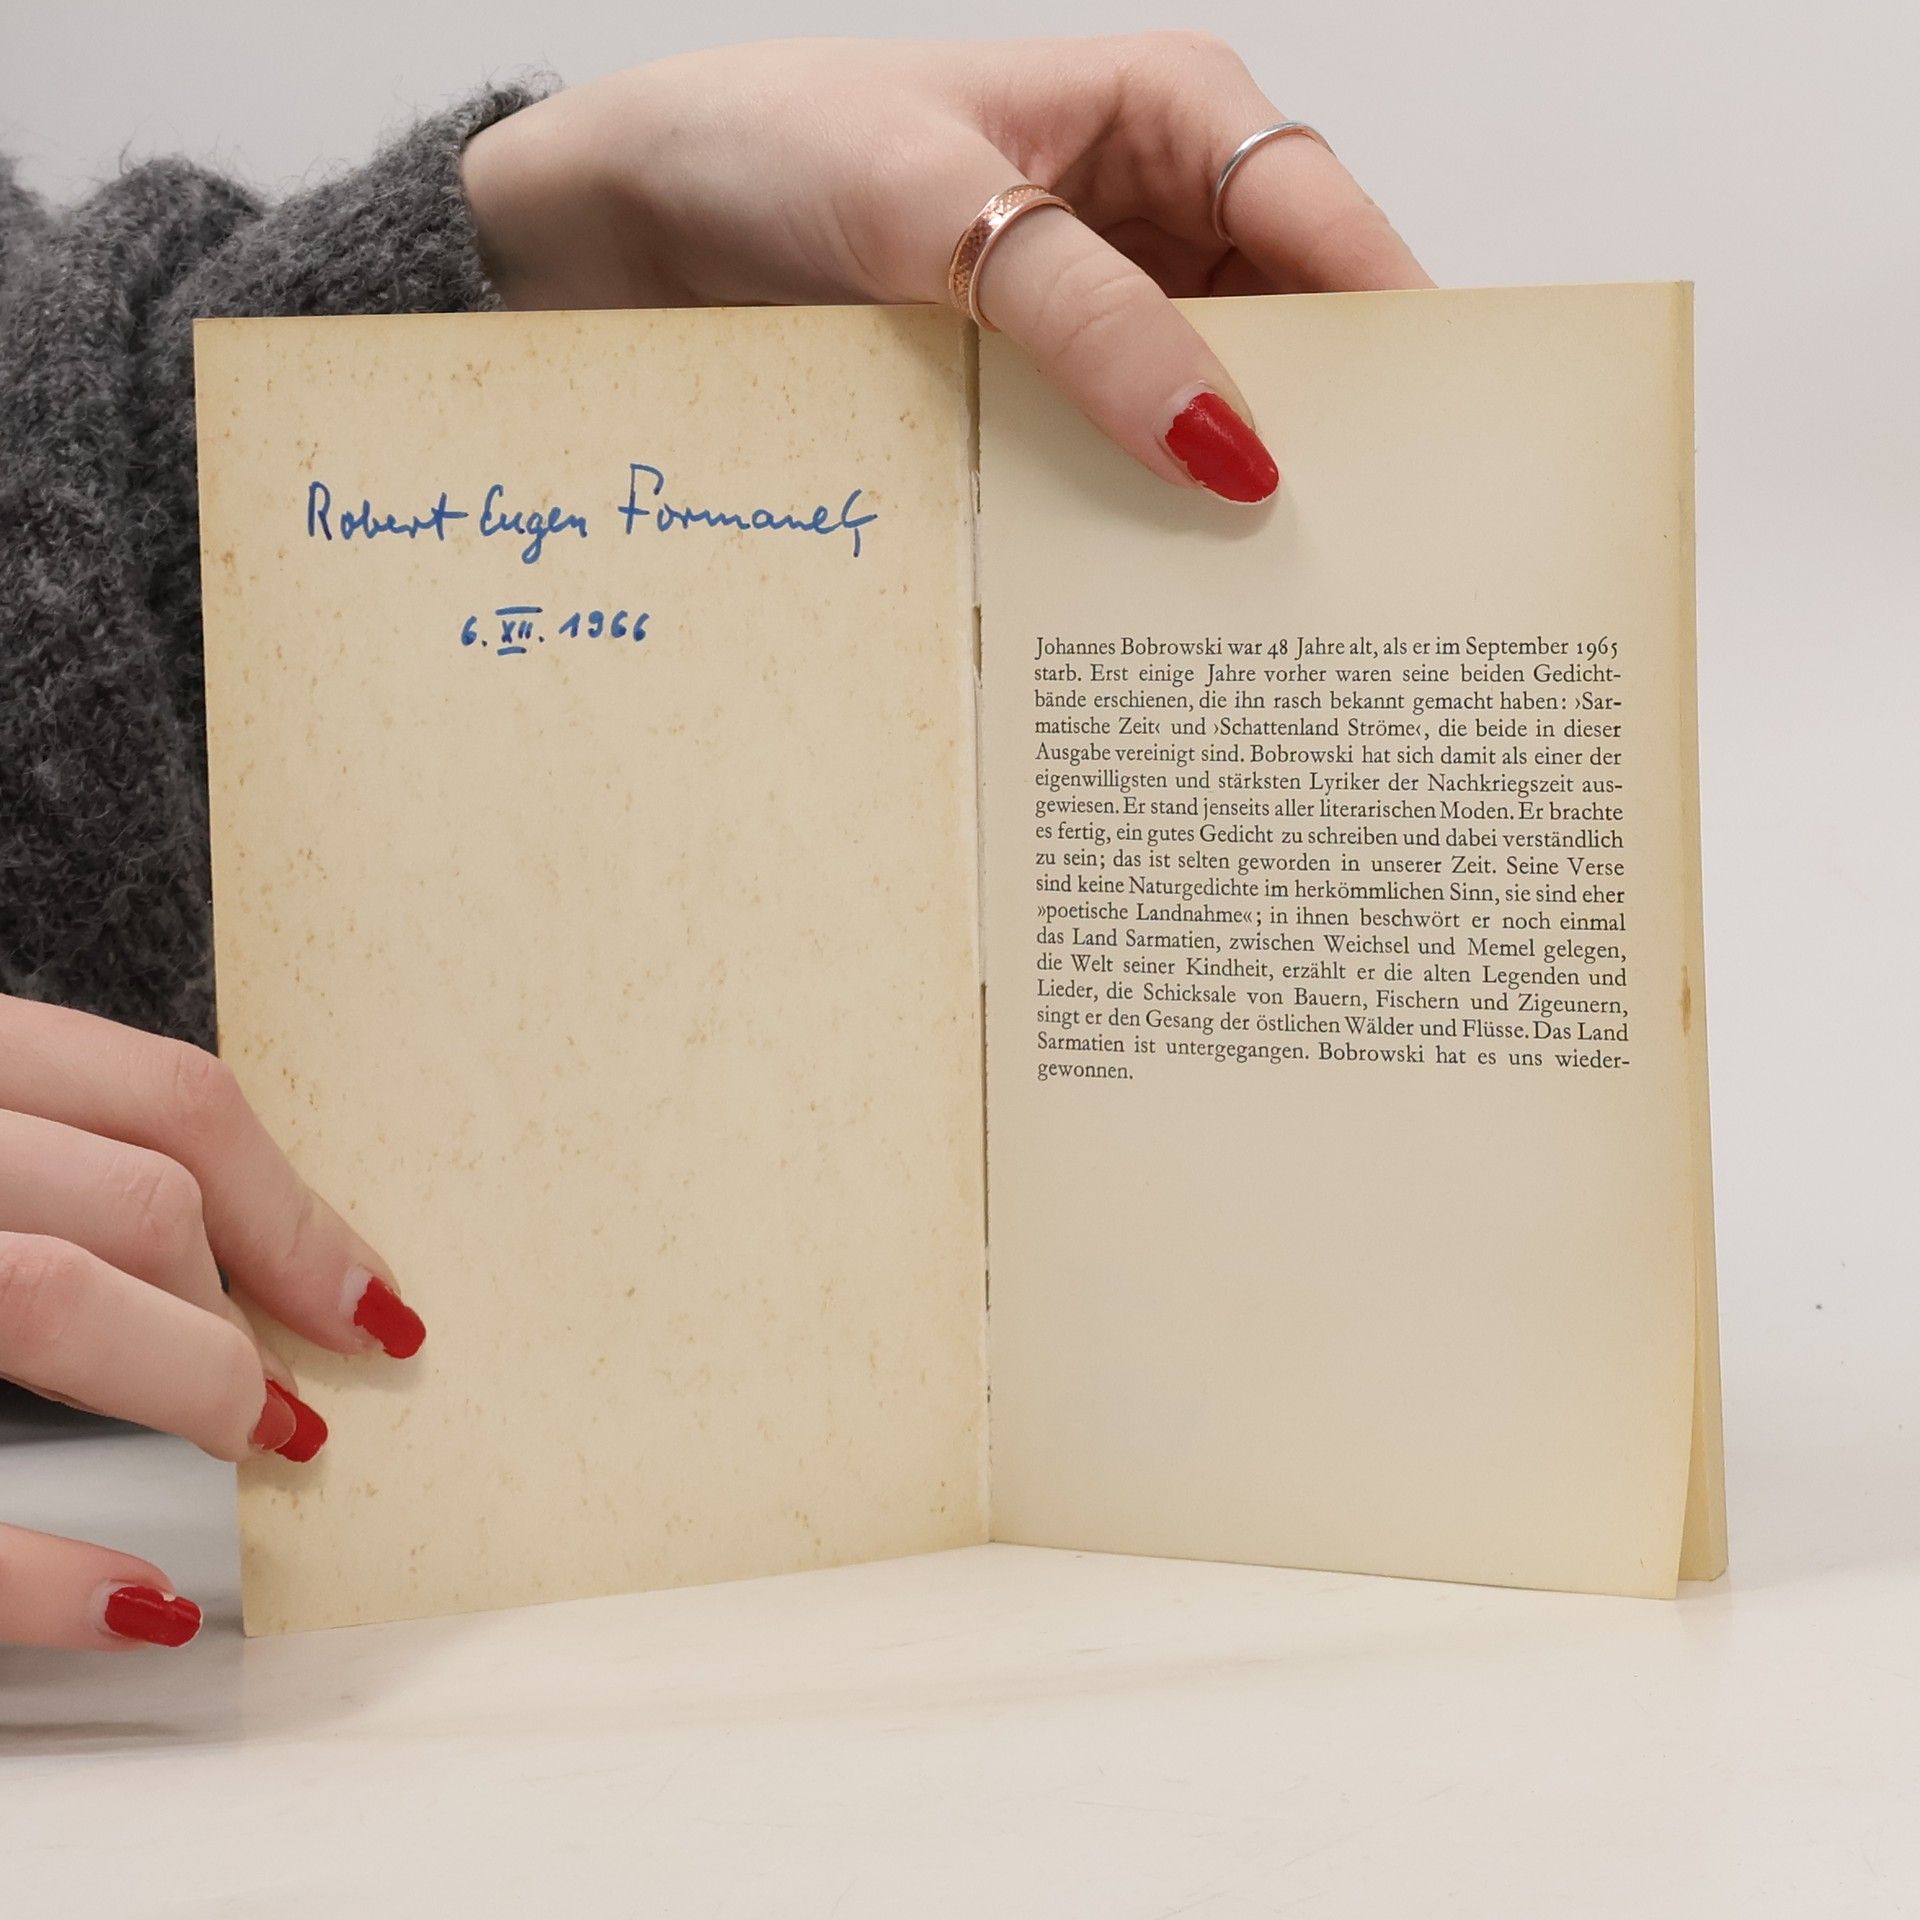 Robert Eugen Formanek
6. XII. 1966
Johannes Bobrowski war 48 Jahre alt, als er im September 1965
starb. Erst einige Jahre vorher waren seine beiden Gedicht-
bände erschienen, die ihn rasch bekannt gemacht haben: ›Sar-
matische Zeit‹ und ›Schattenland Ströme‹, die beide in dieser
Ausgabe vereinigt sind. Bobrowski hat sich damit als einer der
eigenwilligsten und stärksten Lyriker der Nachkriegszeit aus-
gewiesen. Er stand jenseits aller literarischen Moden. Er brachte
es fertig, ein gutes Gedicht zu schreiben und dabei verständlich
zu sein; das ist selten geworden in unserer Zeit. Seine Verse
sind keine Naturgedichte im herkömmlichen Sinn, sie sind eher
»poetische Landnahme«; in ihnen beschwört er noch einmal
das Land Sarmatien, zwischen Weichsel und Memel gelegen,
die Welt seiner Kindheit, erzählt er die alten Legenden und
Lieder, die Schicksale von Bauern, Fischern und Zigeunern,
singt er den Gesang der östlichen Wälder und Flüsse. Das Land
Sarmatien ist untergegangen. Bobrowski hat es uns wieder-
gewonnen.